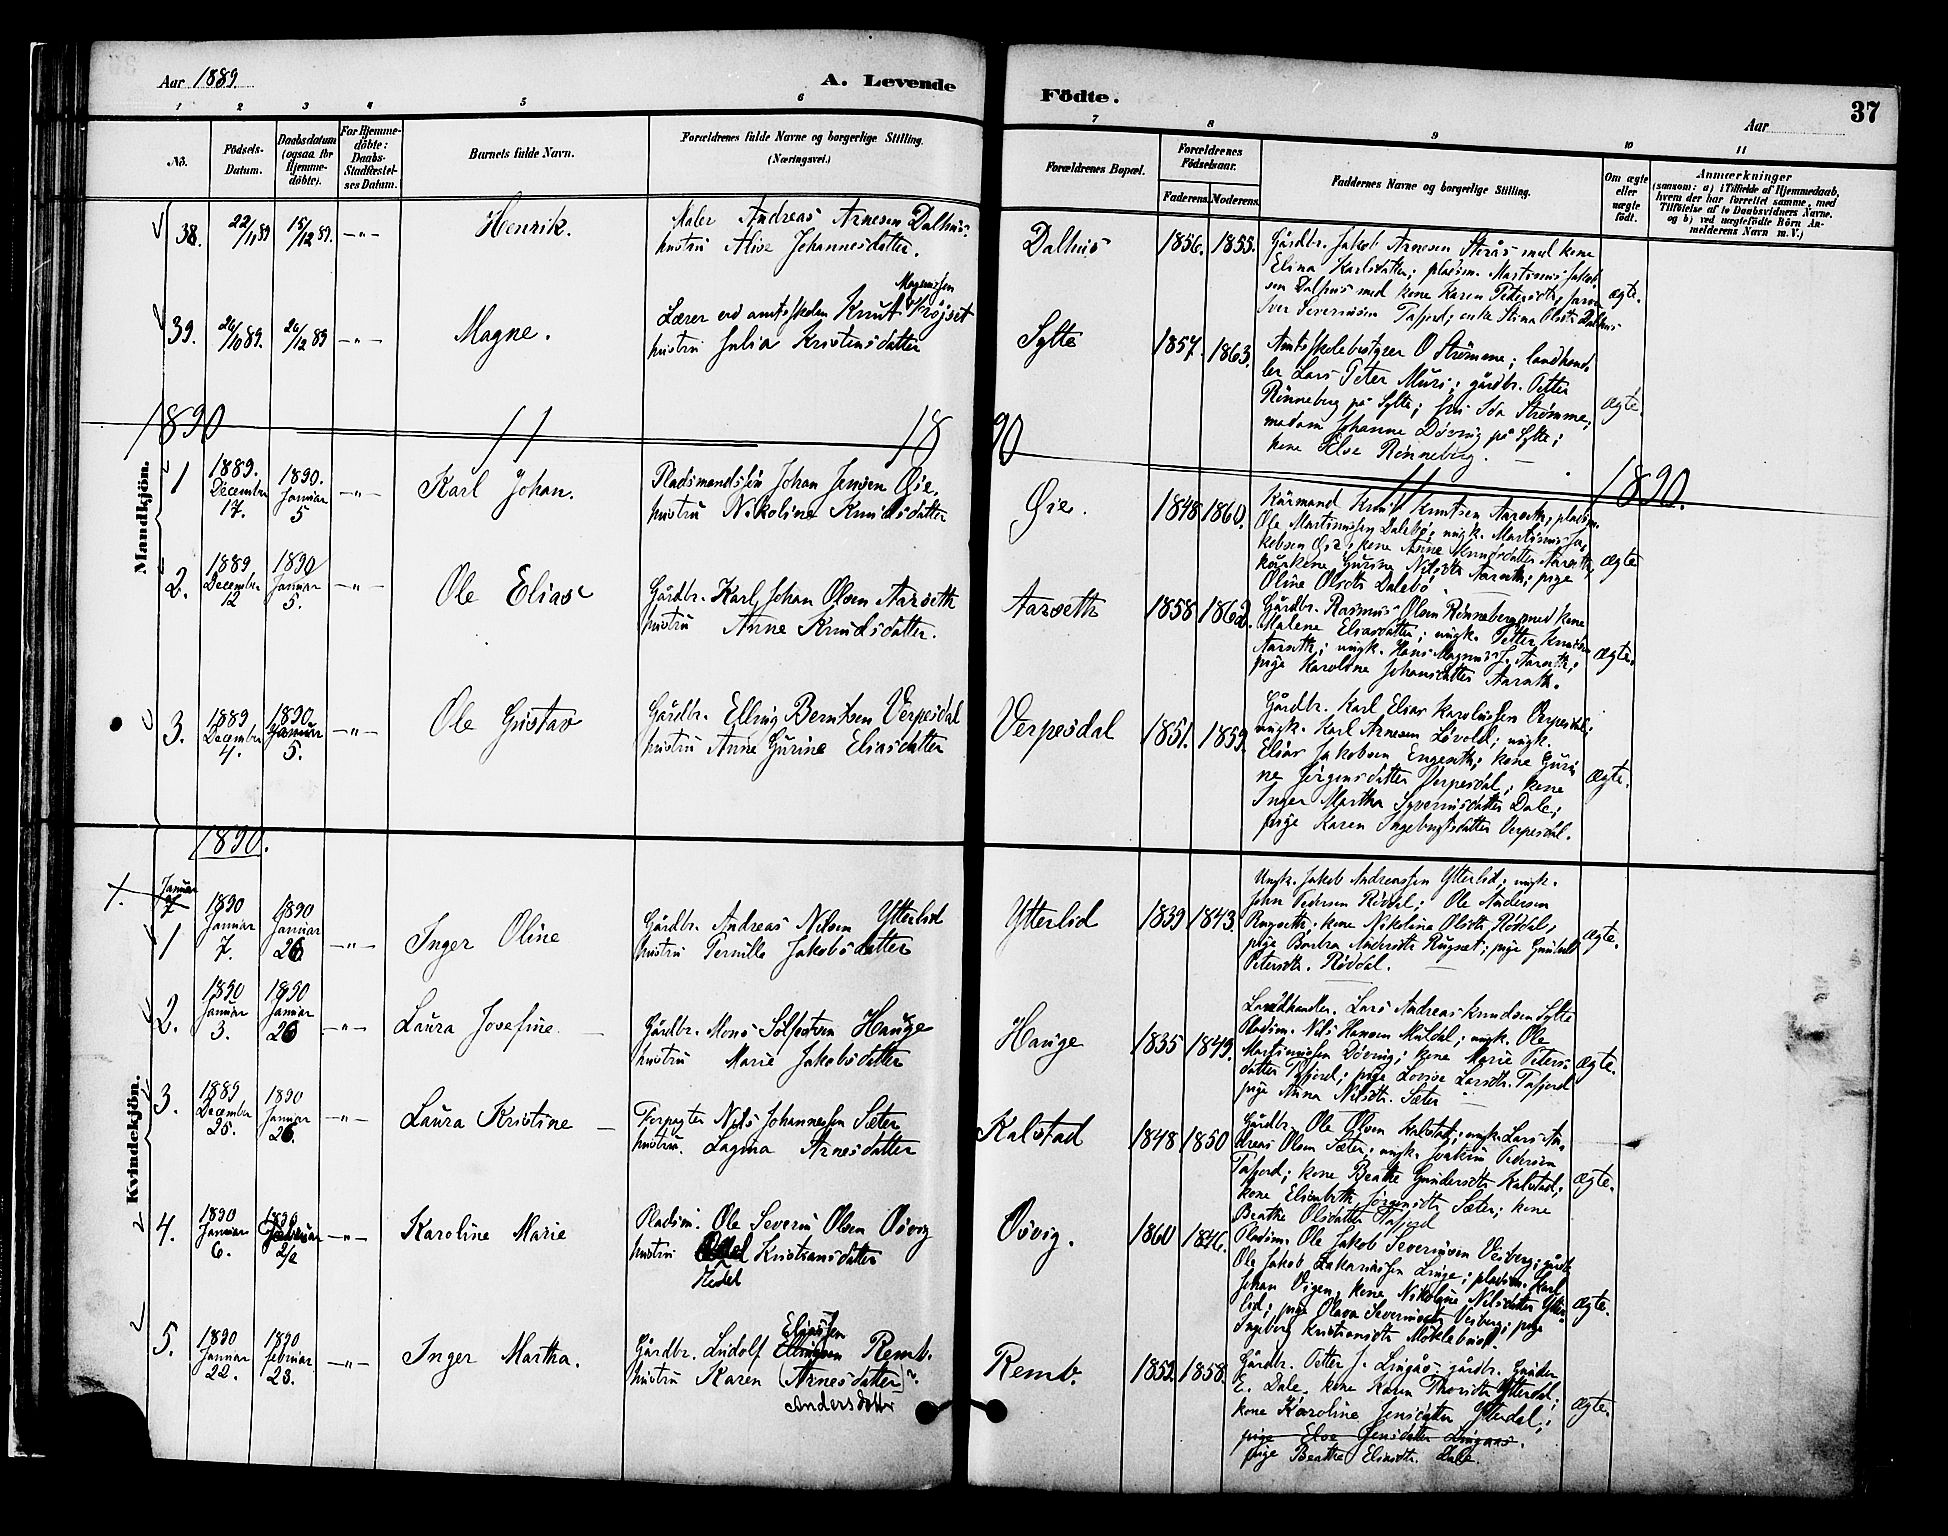 Aar 1889.
A. Levende
Födte.
Aar
37
1 2 3 4 5 6 7 8 9 10 11
No.
Födsels-
Datum.
Daabsdatum
(ogsaa for
Hjemme-
döbte).
For Hjemme-
döbte:
Daabs-
Stadfæstel-
ses Datum.
Barnets fulde Navn.
Forældrenes fulde Navne og borgerlige Stilling.
(Næringsvei.)
Forældrenes Bopæl.
Forældrenes
Födselsaar.
Faderens. Moderens.
Faddernes Navne og borgerlige Stilling.
Om ægte
eller
uægte
födt.
Anmærkninger
(saasom: a) i Tilfælde af Hjemmedaab,
hvem der har forrettet samme, med
Tilföielse af to Daabsvidners Navne,
og b) ved uægtefödte Börn An-
melderens Navn m. V.)
38. 22/11 89 15/12 89. —"— Henrik.
Maler Andreas Arnesen Dalhus.
hustru Alise Johannesdatter.
Dalhus 1856. 1855.
Gårdbr. Jakob Arnesen med kone
Elina Karlsdatter; pladsm. Martinus Jakob
sen Dalhus med kone Karen Pedersdtr,
Iver Severinsen Tafjord; enke Stina Olsdtr Dalhus
ægte.
39. 26/10 89. 26/12 89 —"— Magne.
Magnussen
Lærer ved amtsskolen Knut Krøjset
hustru Julia Kristensdatter
Sylte 1857. 1863.
Amtsskolebestyrer O Strømme; landhand
ler Lars Peter Muri; gårdbr. Petter
Rønneberg på Sylte; fru Ida Strømme;
madam Johanne Døving på Sylte;
kone Else Rønneberg.
ægte.
1890 11 1890 11 1890.
Mandkjön.
1 1889. December 17. 1890. Januar 5 —"— Karl Johan.
Pladsmandssøn Johan Jensen Øie.
hustru Nikoline Knudsdatter
Øie. 1848 1860.
Kårmand Knut Knutsen Aarseth; pladsm.
Ole Martinussen Dalebø; ungk. Martinus Ja-
kobsen Øie; kone Anne Knudsdatter Aarseth,
kårkone Gurine Nilsdtr Aarseth; pige
Oline Olsdtr Dalebø
ægte
2. 1889 December 12 1890 Januar 5. —"— Ole Elias
Gårdbr. Karl Johan Olsen Aarseth
hustru Anne Knudsdatter.
Aarseth 1858 1862.
Gårdbr. Rasmus Olsen Rønneberg med kone
Malene Eliasdatter; ungk. Petter Knudsen
Aarseth; ungk. Hans Magnus J. Aarseth;
pige Karoline Johansdatter Aarseth.
ægte.
3. 1889 December 4. 1890 Januar 5. —"— Ole Gustav
Gårdbr. Elling Berntsen Verpesdal
hustru Anne Gurine Eliasdatter
Verpesdal 1851. 1859.
Gårdbr. Karl Elias Karolussen Verpesdal;
ungk. Karl Arnesen Løvold; ungk.
Elias Jakobsen Engeseth; kone Guri
ne Jørgensdatter Verpesdal; kone
Inger Martha Syverinsdatter Dale;
pige Karen Ingebrigtsdatter Verpesdal.
ægte.
1890.
Kvindekjön.
1. Januar 7
1 1890 Januar 7. 1890 Januar 26 —"— Inger Oline
Gårdbr. Andreas Nilsen Ytterlid
hustru Pernille Jakobsdatter
Ytterlid 1839 1843.
Ungk. Jakob Andreassen Ytterlid; ungk.
John Pedersen Røddal; Ole Andersen
Rugseth; kone Nikoline Olsdtr Røddal;
pige Barbra Andersdtr Rugset; pige Gunhild
Petersdtr. Røddal.
ægte.
2. 1890 Januar 3. 1890 Januar 26 —"— Laura Josefine.
Gårdbr. Mons Solfestsen Hauge
hustru Marie Jakobsdatter
Hauge 1835 1849.
Landhandler. Lars Andreas Knudsen Sylte
Pladsm. Nils Hansen Muldal; ungk. Ole
Martinussen Døving; kone Marie Peters-
datter Tafjord; pige Lovise Larsdtr. Tafjord
pige Anna Nilsdtr. Sæter
ægte.
3. 1889 December 25. 1890 Januar 26. —"— Laura Kristine
Forpagter Nils Johannessen Sæter
hustru. Lagina Arnesdatter
Kalstad 1848 1850
Gårdbr. Ole Olsen Kalstad; ungk. Lars An-
dreas Olsen Sæter; ungk. Joakim Pedersen
Tafjord; kone Beathe Gundersdtr Kalstad;
kone Elisabeth Jørgensdtr Sæter; kone
Beathe Olsdatter Tafjord
ægte.
4. 1890 Januar 6. 1890 Februar 2/2 —"— Karoline Marie
Pladsm. Ole Severin Olsen Uövig
hustru Kristiansdatter
Zedel
Uövig. 1860 1846.
Pladsm. Ole Jakob Severinsen Vesberg; gårdb
Ole Jakob Zakariassen Linge; pladsm. Karl
Johan Vigen; kone Nikoline Nilsdatter Ytter-
lid; pige Olava Severinsdtr Vesberg; pige
Ingeborg Kristiansdtr Møklebust.
ægte.
5. 1890 Januar 22. 1890 februar 23. —"— Inger Martha.
Eliassen
Gårdbr. Ludolf Ellingsen Remb.
hustru Karen (Arnesdatter)?
Andersdatter
Remb. 1859. 1858.
Gårdbr. Petter J. Lingås. gårdbr. Gunder
E. Dale. kone Karen Thorsdtr Ytterdal;
kone Karoline Jensdatter Ytterdal;
pige Else Jensdatter Lingaas.
pige Beathe Eliasdtr. Dale.
ægte.